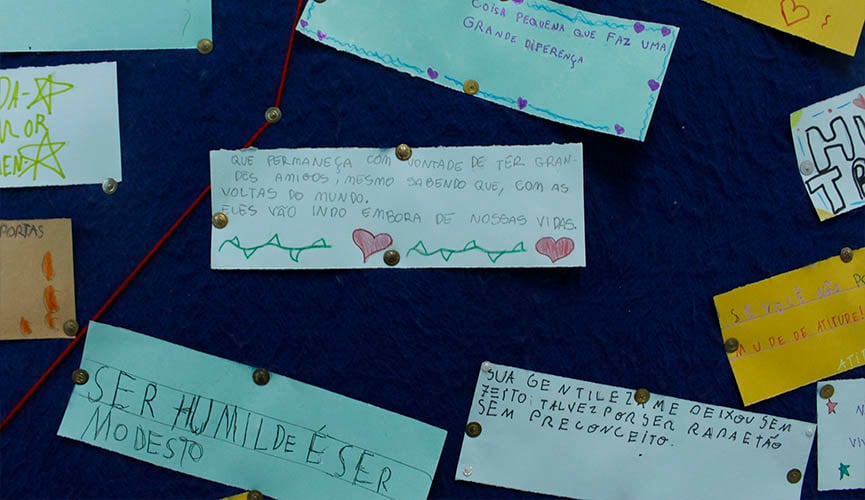 COISA PEQUENA QUE FAZ UMA
GRANDE DIFERENÇA
QUE PERMANEÇA COM VONTADE DE TÊR GRAN-
DES AMIGOS, MESMO SABENDO QUE, COM AS
VOLTAS DO MUNDO.
ELES VÃO INDO EMBORA DE NOSSAS VIDAS.
PORTAS
SE VOCÊ NÃO
MUDE DE ATITUDE!
SER HUMILDE É SER
MODESTO
SUA GENTILEZA ME DEIXOU SEM
JEITO: TALVEZ POR SER RAPAZ TÃO
SEM PRECONCEITO.